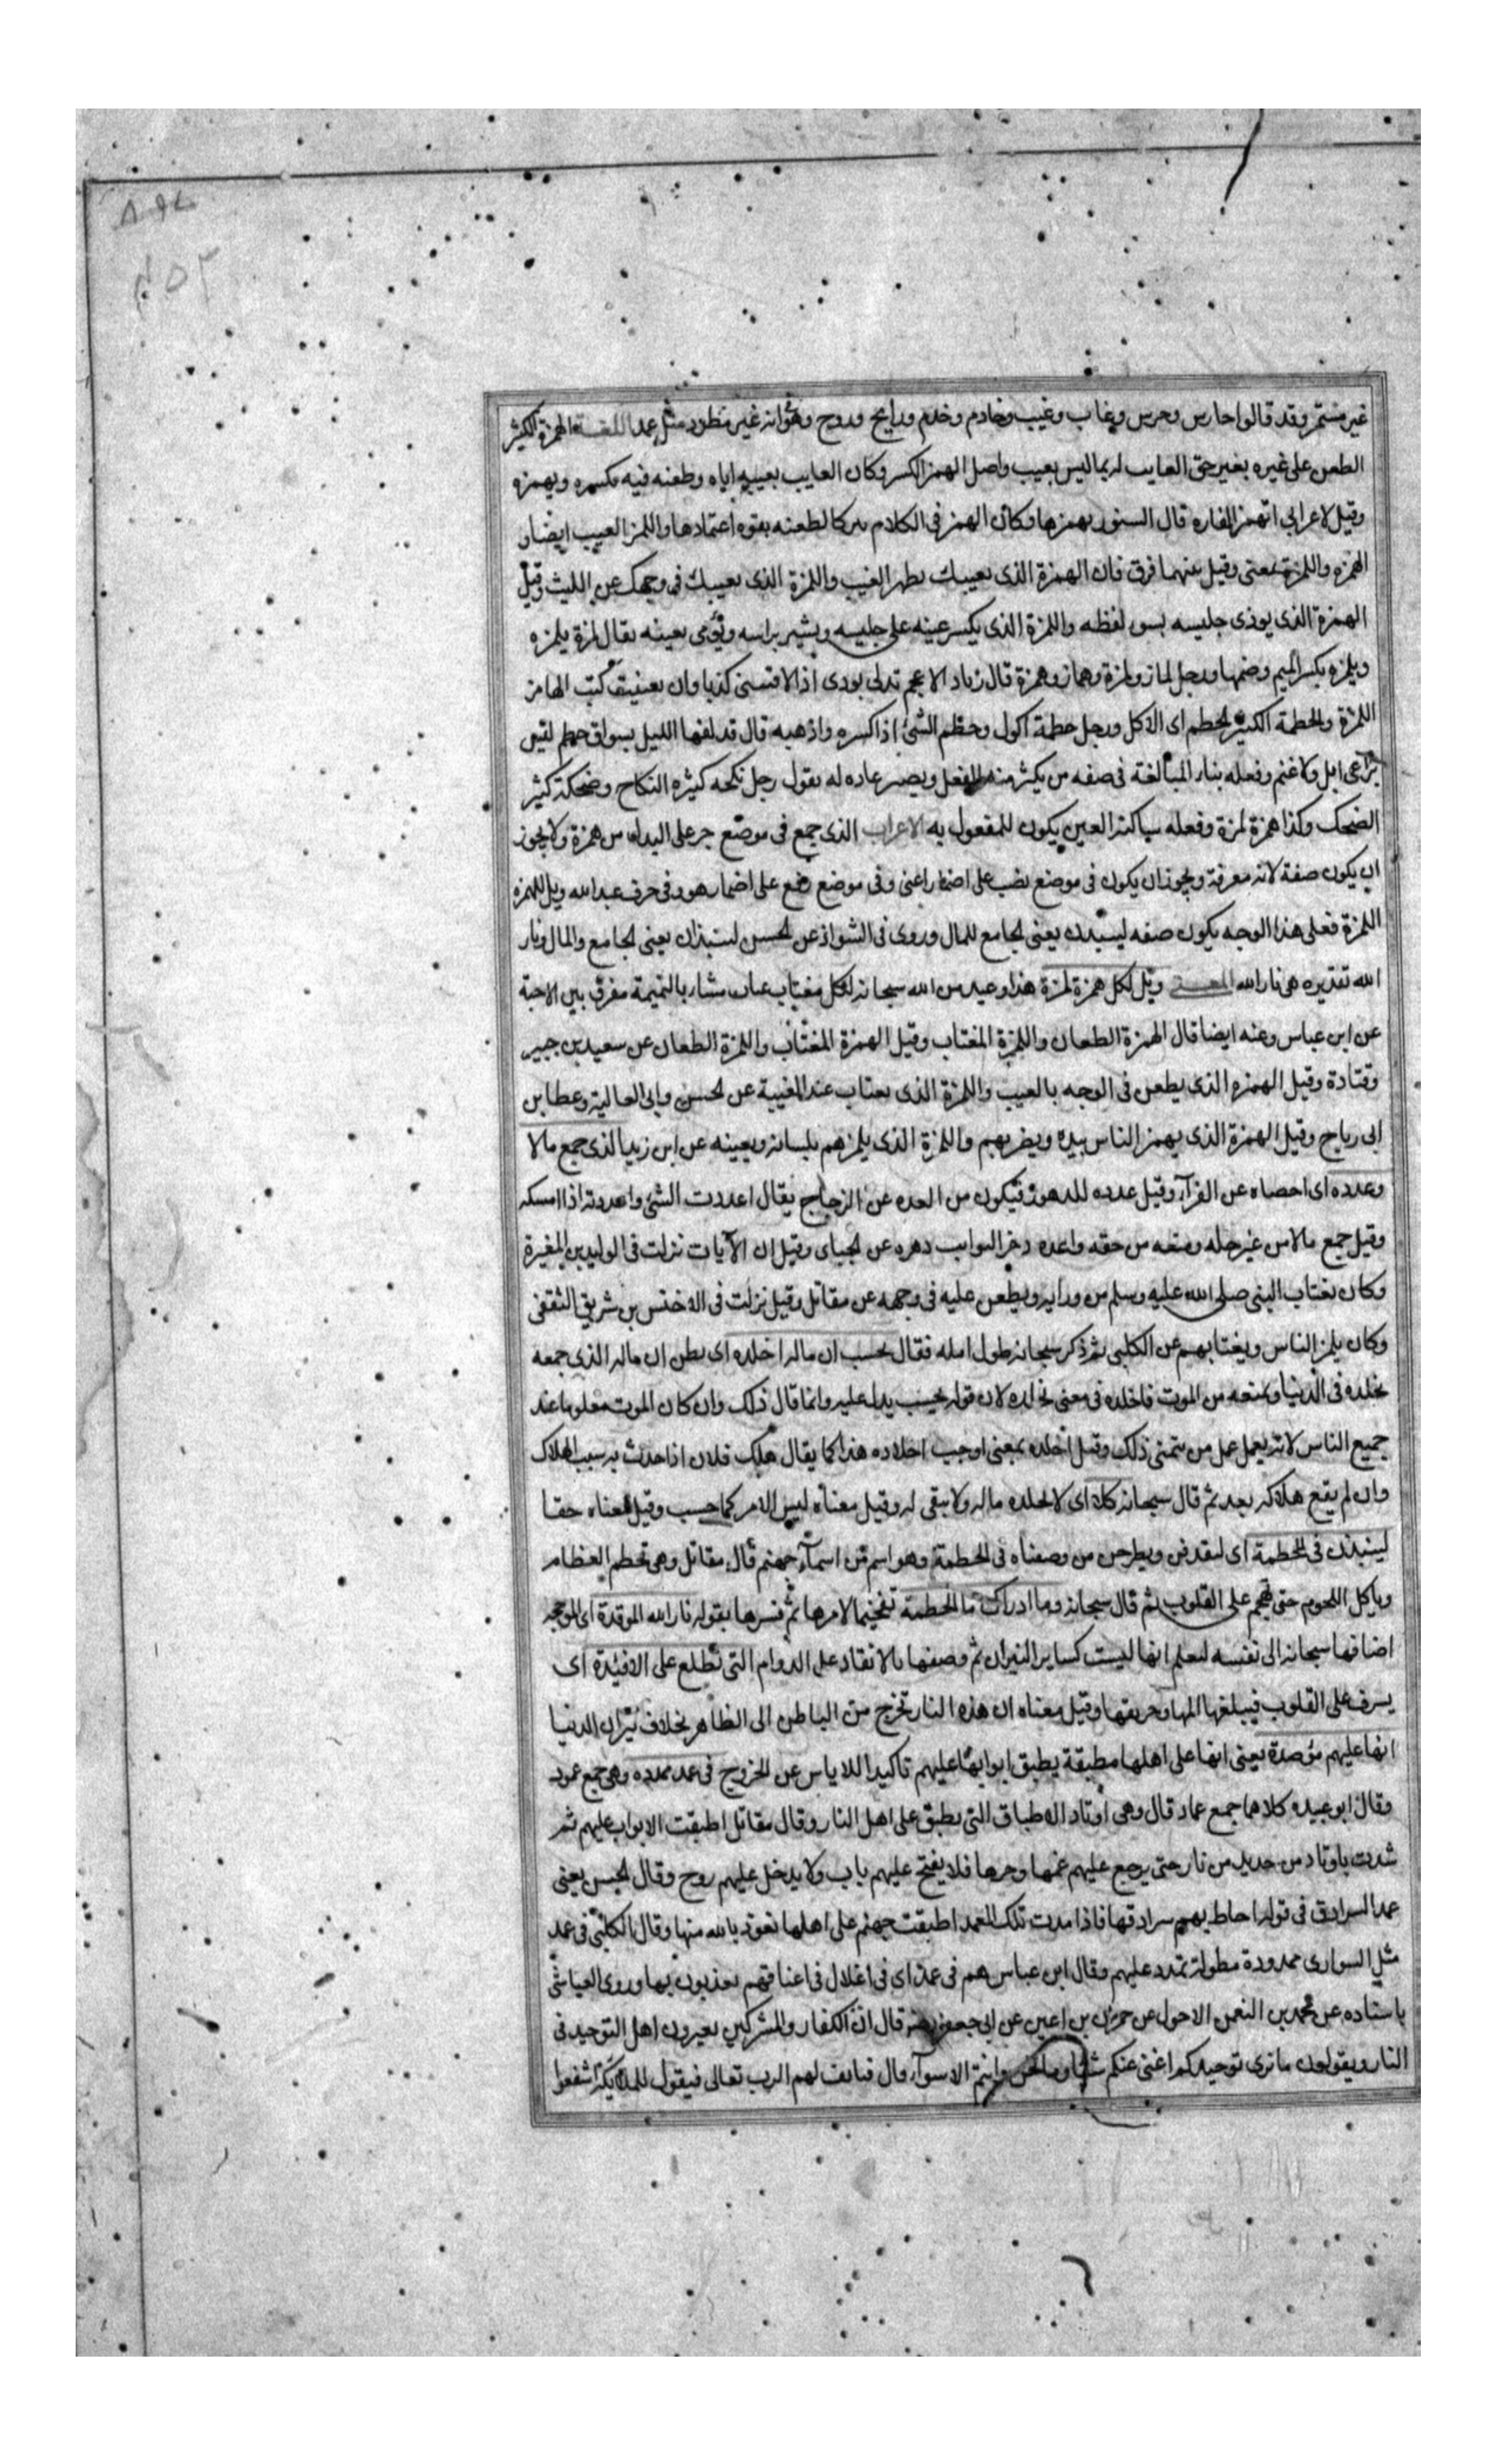 غير مستمر وقد قالوا حارس وحرس وغاب وغيب وخادم وخدم ورايح وروح وهو انه غير مطرد مثل عمد اللغة الهمزة الكثير
الطعن على غيره بغير حق العايب له بما ليس بعيب واصل الهمز الكسر وكان العايب بعيبه اياه وطعنه فيه يكسره ويهمزه
وقيل لاعرابي اتهمز الفاره قال السنور يهمزها وكان الهمز في الكلام كالطعنه بقوه اعتمادها واللمز العيب ايضا و
الهمزه واللمزة بمعنى وقيل بينهما فرق فان الهمزة الذى يعيبك بظهر الغيب واللمزة الذى يعيبك فى وجهك عن الليث وقيل
الهمزة الذى يوذى جليسه بسو لفظه واللمزة الذى يكسر عينه على جليسه ويشير براسه ويومى بعينه يقال لمزة يلمزه
ويلمزه بكسر الميم وضمها ورجل لماز ولمزة وهماز وهمزة قال زياد الاعجم تدلى بودى اذا لاقتسنى كذبا وان كنت الهامز
اللمزة والحطمة الكثير الحطم اى الاكل ورجل حطمة اكول وحطم الشئ اذا كسره واذهبه قال قد لفها الليل بسواق حطم ليس
براعى ابل ولا غنم وفعله بناء المبالغة فى صفه من يكثر منه الفعل ويصير عاده له يقول رجل نكحه كثيره النكاح وضحكة كثير
الضحك وكذا همزة لمزة وفعله ساكنة العين يكون للمفعول به الاعراب الذى جمع فى موضع جر على البدل من همزة ولا يجوز
ان يكون صفة لانه معرفة ويجوز ان يكون فى موضع نصب على اضمار اعنى وفى موضع رفع على اضمار هو وفى حرف عبد الله ويل للهمزه
اللمزة فعلى هذا الوجه يكون صفه لينبذن يعنى الجامع للمال وروى فى الشواذ عن الحسن لينبذان يعنى الجامع والمال ونار
الله تقديره هى نار الله المعنى ويل لكل همزة لمزة هذا وعيد من الله سبحانه لكل مغتاب عياب مشاء بالنميمة مفرق بين الاحبة
عن ابن عباس وعنه ايضا قال الهمزة الطعان واللمزة المغتاب وقيل الهمزة المغتاب واللمزة الطعان عن سعيد بن جبير
وقتادة وقيل الهمزه الذى يطعن فى الوجه بالعيب واللمزة الذى يغتاب عند المغيبة عن الحسن وابى العالية وعطا بن
ابى رباح وقيل الهمزة الذى يهمز الناس بيده ويضربهم واللمزة الذى يلمزهم بلسانه وبعينه عن ابن زيد الذى جمع مالا
وعدده اى احصاه عن الفراء وقيل عدده للدهور فيكون من العده عن الزجاج يقال اعددت الشئ واعددته اذا امسكه
وقيل جمع مالا من غير حله ومنعه من حقه واعده ذخر النوايب دهره عن الجبائى وقيل ان الآيات نزلت فى الوليد بن المغيرة
وكان يغتاب النبى صلى الله عليه وسلم من ورايه ويطعن عليه فى وجهه عن مقاتل وقيل نزلت فى الاخنس بن شريق الثقفى
وكان يلمز الناس ويغتابهم عن الكلبى ثم ذكر سبحانه طول امله فقال يحسب ان ماله اخلده اى يظن ان ماله الذى جمعه
يخلده فى الدنيا ويمنعه من الموت فاخلده فى معنى يخلده لان قوله يحسب يدل عليه وانما قال ذلك وان كان الموت معلوما عند
جميع الناس لانه يعمل عمل من يتمنى ذلك وقيل اخلده بمعنى اوجب اخلاده هذا كما يقال هلك فلان اذا حدث به سبب الهلاك
وان لم يقع هلاكه بعد ثم قال سبحانه كلا اى لا يخلده ماله ولا يبقى له وقيل معناه ليس الامر كما حسب وقيل معناه حقا
لينبذن فى الحطمة اى ليقذفن ويطرحن من وصفناه فى الحطمة وهو اسم من اسماء جهنم قال مقاتل وهى تحطم العظام
وياكل اللحوم حتى تهجم على القلوب ثم قال سبحانه وما ادراك ما الحطمة تفخيما لامرها ثم فسرها بقوله نار الله الموقدة اى الموججه
اضافها سبحانه الى نفسه ليعلم انها ليست كساير النيران ثم وصفها بالانقاد على الدوام التى تطلع على الافئدة اى
يسرف على القلوب فيبلغها المها وحريقها وقيل معناه ان هذه النار تخرج من الباطن الى الظاهر بخلاف نيران الدنيا
انها عليهم مؤصدة يعنى انها على اهلها مطبقة يطبق ابوابها عليهم تاكيدا للاياس عن الخروج فى عمد ممدده وهى جمع عمود
وقال ابو عبيده كلاهما جمع عماد قال وهى اوتاد الاطباق التى يطبق على اهل النار وقال مقاتل اطبقت الابواب عليهم ثم
شدت باوتاد من حديد من نار حتى يرجع عليهم غمها وحرها فلا يفتح عليهم باب ولا يدخل عليهم روح وقال الحسن يعنى
عمد السرادق فى قوله احاط بهم سرادقها فاذا مدت تلك العمد اطبقت جهنم على اهلها نعوذ بالله منها وقال الكلبى فى عمد
مثل السوارى ممدودة مطولة تمدد عليهم وقال ابن عباس هم فى عمد اى فى اغلال فى اعناقهم يعذبون بها وروى العياشى
باسناده عن محمد بن النعمن الاحول عن حمران بن اعين عن ابى جعفر قال ان الكفار والمشركين يعيرون اهل التوحيد فى
النار ويقولون ما نرى توحيدكم اغنى عنكم شيئا وما نحن وانتم الا سواء قال فيانف لهم الرب تعالى فيقول للملائكة اشفعوا